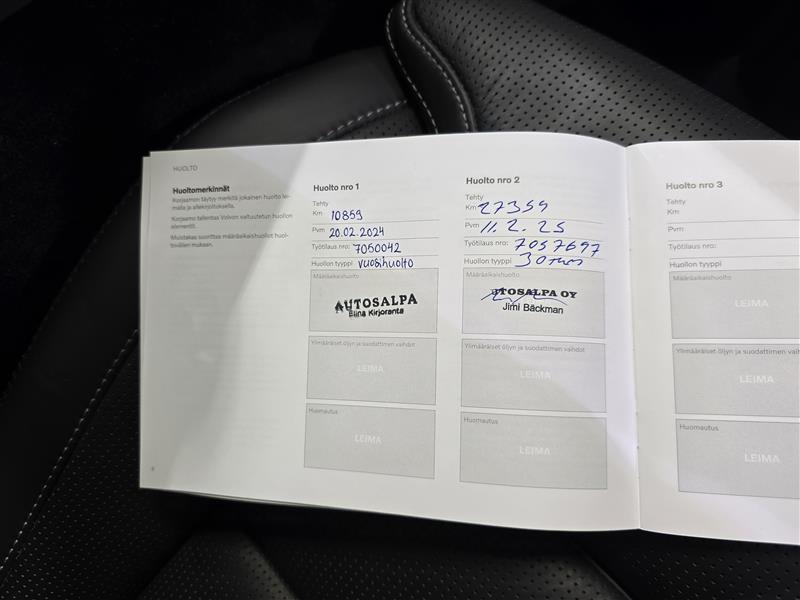 HUOLTO
Huoltomerkinnät
Korjaamon täytyy merkitä jokainen huolto lei-
malla ja allekirjoituksella.
Korjaamo tallentaa Volvon valtuutetun huollon
elementit.
Muistakaa suorittaa määräaikaishuollot huol-
tovälien mukaan.
Huolto nro 1
Tehty
Km 10859
Pvm 20.02.2024
Työtilaus nro: 7050042
Huollon tyyppi vuosihuolto
Määräaikaishuolto
AUTOSALPA
Elina Kirjoranta
Ylimääräiset öljyn ja suodattimen vaihdot
LEIMA
Huomautus
LEIMA
Huolto nro 2
Tehty
Km 27359
Pvm 11.2.25
Työtilaus nro: 7057697
Huollon tyyppi 30
Määräaikaishuolto
AUTOSALPA OY
Jimi Bäckman
Ylimääräiset öljyn ja suodattimen vaihdot
LEIMA
Huomautus
LEIMA
Huolto nro 3
Tehty
Km
Pvm
Työtilaus nro:
Huollon tyyppi
Määräaikaishuolto
LEIMA
Ylimääräiset öljyn ja suodattimen vaih
LEIMA
Huomautus
LEIMA